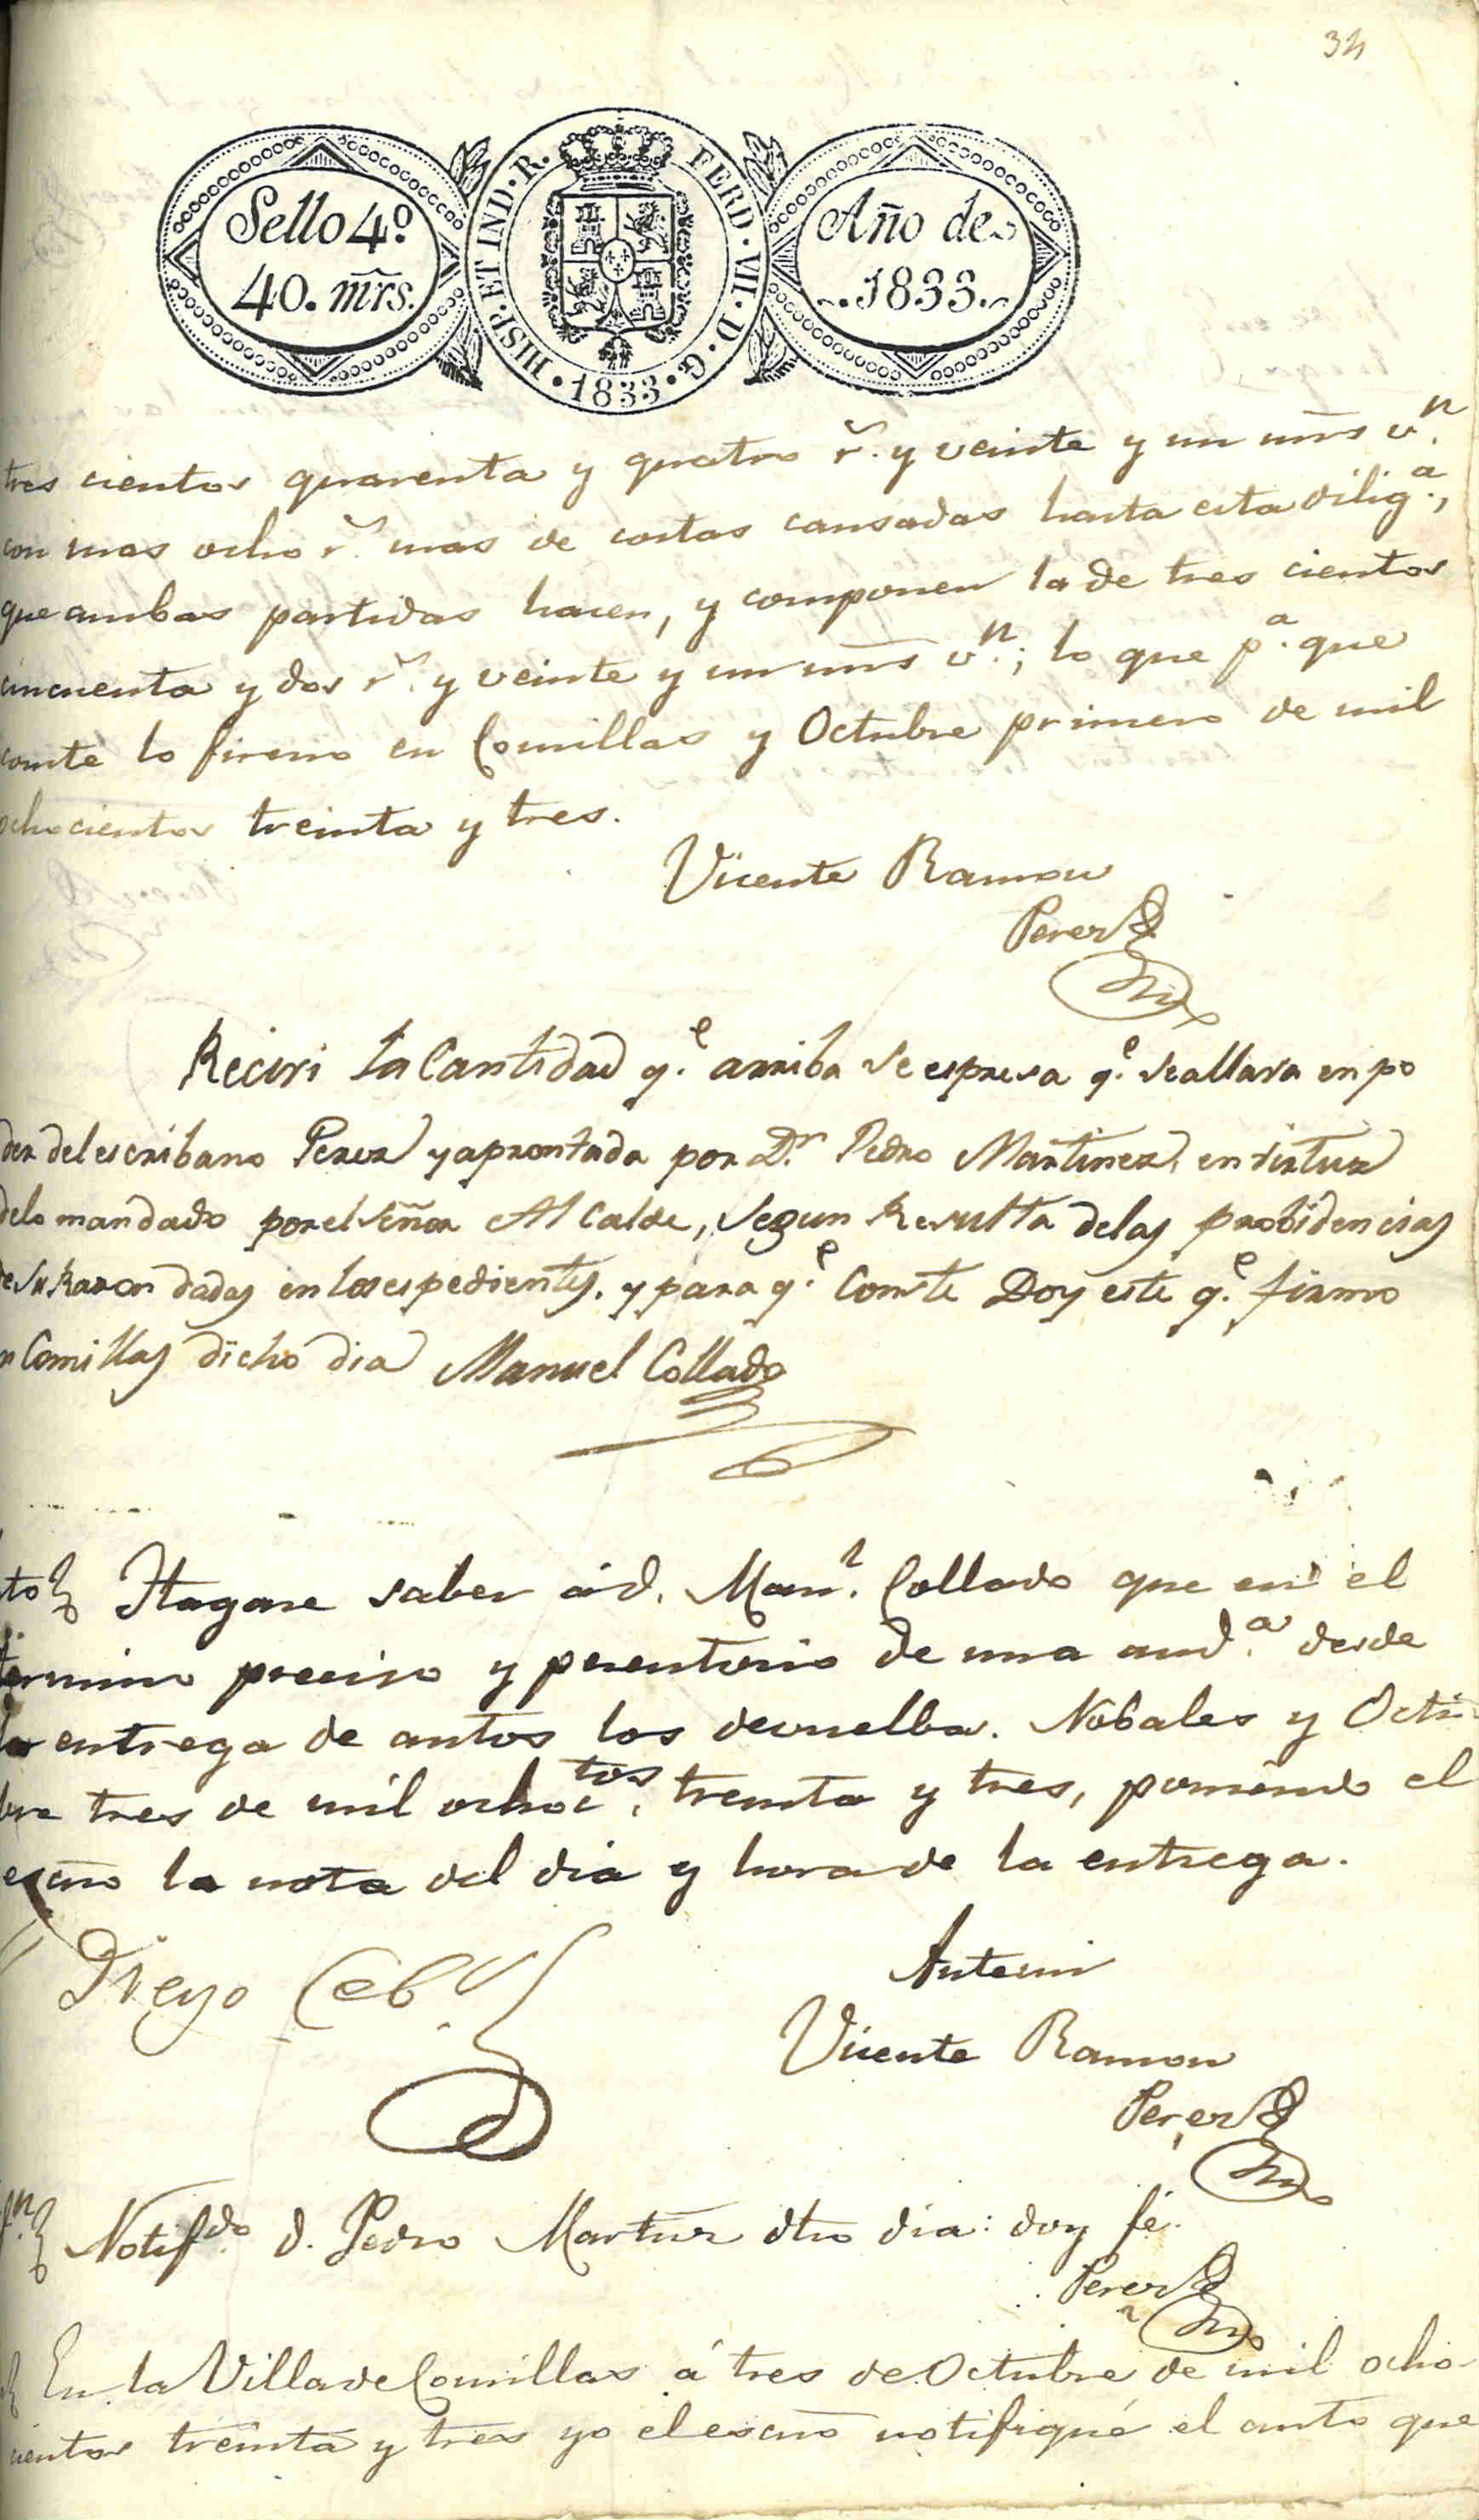 34
Sello 4º
40. mrs.
HISP. ET IND. R. FERD. VII. D. G. 1833
Año de
1833.
tres cientos quarenta y quatro r.ˢ y veinte y un mrs v.ⁿ
con mas ocho r.ˢ mas de costas causadas hasta esta dilig.ª,
que ambas partidas hacen, y componen la de tres cientos
cincuenta y dos r.ˢ y veinte y un mrs v.ⁿ; lo que p.ª que
conste lo firmo en Comillas y Octubre primero de mil
ochocientos treinta y tres.
Vicente Ramon
Perez
Reciví la Cantidad q.ᵉ arriba se espresa q.ᵉ se allava en po
der del escribano Perez y aprontada por D.ⁿ Pedro Martinez, en virtuz
delo mandado por el señor Alcalde, segun Resulta delas probidencias
de su Razon dadas en los espedientes. y para q.ᵉ Conste Doy este q.ᵉ firmo
en Comillas dicho dia Manuel Collado
to Hagase saber á d. Man.ˡ Collado que en el
termino preciso y perentorio de una aud.ª desde
la entrega de autos los devuelba. Nobales y Octu-
bre tres de mil ochoc.ᵗᵒˢ treinta y tres, poniendo el
escno la nota del dia y hora de la entrega.
Diego Ceb
Antemi
Vicente Ramon
Perez
Notif.ᵈᵒ d. Pedro Martinz dho dia: doy fé.
Perez
En la Villa de Comillas á tres de Octubre de mil ocho-
cientos treinta y tres yo el escno notifiqué el auto que